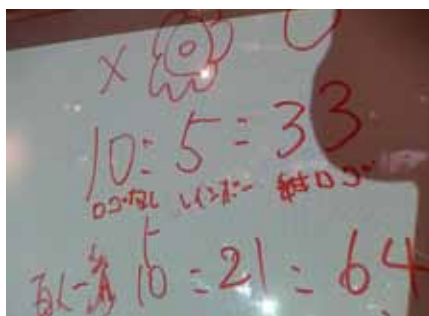 ×
10:5=33
ロゴなし レインボー 緑ロゴ
百人一首 10:21:64